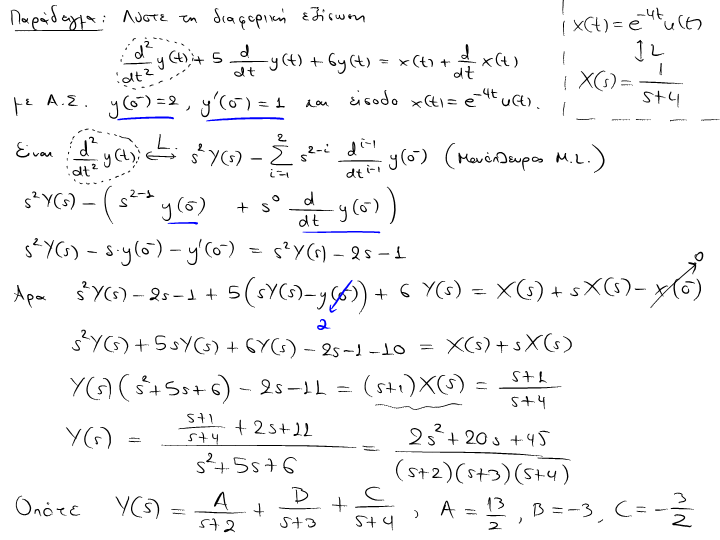 Παράδειγμα: Λύστε τη διαφορική εξίσωση
d²/dt² y(t) + 5 d/dt y(t) + 6y(t) = x(t) + d/dt x(t)
με Α.Σ. y(0⁻)=2, y'(0⁻)=1 και είσοδο x(t)=e^{-4t}u(t).
x(t)=e^{-4t}u(t)
↕ L
X(s)= 1/(s+4)
Είναι d²/dt² y(t) ⟷^L s²Y(s) - Σ_{i=1}^{2} s^{2-i} d^{i-1}/dt^{i-1} y(0⁻) (Μονόπλευρος Μ.L.)
s²Y(s) - (s^{2-1} y(0⁻) + s⁰ d/dt y(0⁻))
s²Y(s) - s·y(0⁻) - y'(0⁻) = s²Y(s) - 2s - 1
Άρα s²Y(s) - 2s - 1 + 5(sY(s) - y(0⁻)) + 6 Y(s) = X(s) + sX(s) - x(0⁻)
0
2
s²Y(s) + 5sY(s) + 6Y(s) - 2s - 1 - 10 = X(s) + sX(s)
Y(s)(s²+5s+6) - 2s - 11 = (s+1)X(s) = (s+1)/(s+4)
Y(s) = ((s+1)/(s+4) + 2s + 11)/(s²+5s+6) = (2s²+20s+45)/((s+2)(s+3)(s+4))
Οπότε Y(s) = A/(s+2) + B/(s+3) + C/(s+4), A = 13/2, B = -3, C = -3/2